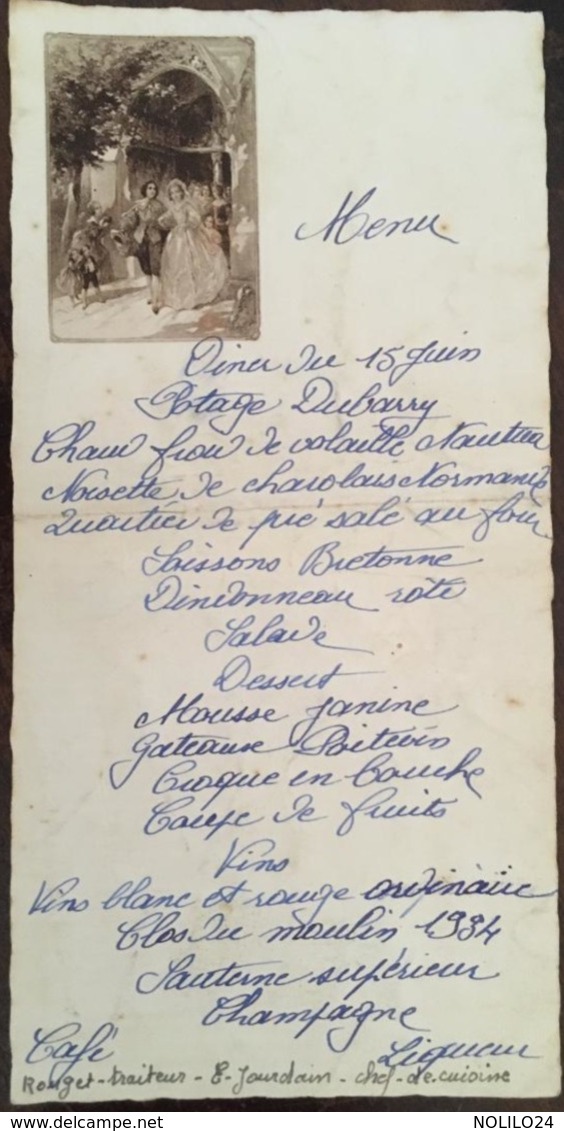 Menu
Diner du 15 Juin
Potage Dubarry
Chaud froid de volaille Nantua
Noisette de charolais Normande
Quartier de pré salé au four
Soissons Bretonne
Dindonneau rôti
Salade
Dessert
Mousse Janine
Gateaux Poitevin
Croque en bouche
Coupe de fruits
Vins
Vins blanc et rouge ordinaire
Clos du moulin 1934
Sauterne supérieur
Champagne
Café Liqueur
Rouget-traiteur - E-Jourdain - chef-de-cuisine
NOLILO24